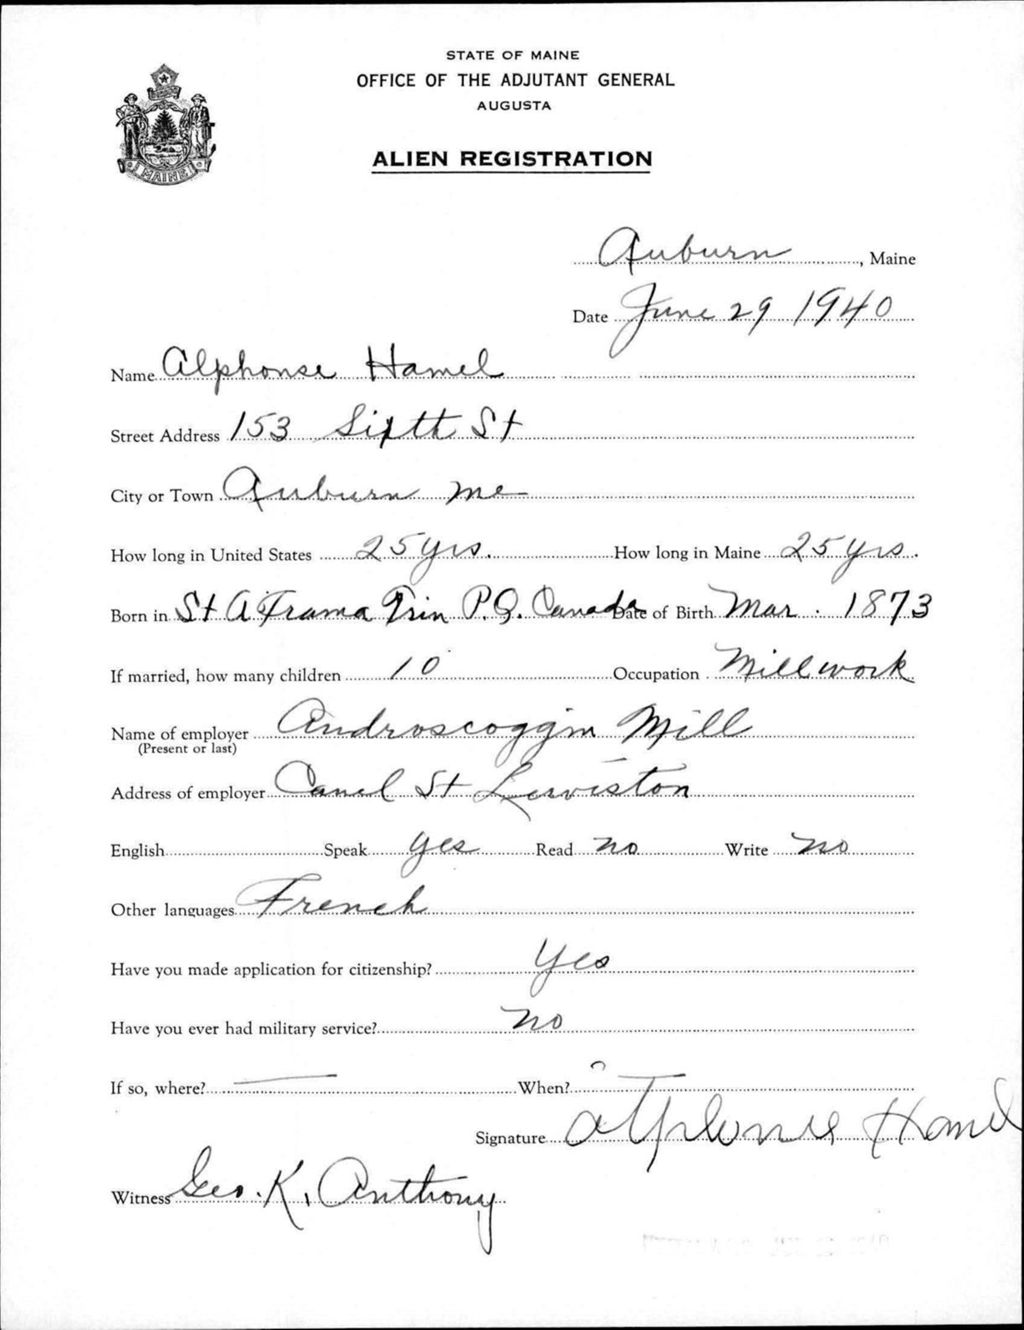 STATE OF MAINE
OFFICE OF THE ADJUTANT GENERAL
AUGUSTA
ALIEN REGISTRATION
MAINE
Auburn, Maine
Date June 29 1940
Name Alphonse Hamel
Street Address 153 Sixth St
City or Town Auburn Me
How long in United States 25 yrs. How long in Maine 25 yrs.
Born in St A Frama Trin P.Q. Canada Date of Birth Mar. 1873
If married, how many children 10 Occupation Mill work
Name of employer Androscoggin Mill
(Present or last)
Address of employer Canel St Lewiston
English Speak yes Read no Write no
Other languages French
Have you made application for citizenship? Yes
Have you ever had military service? no
If so, where? — When?
Signature Alphonse Hamel
Witness Geo. K. Anthony